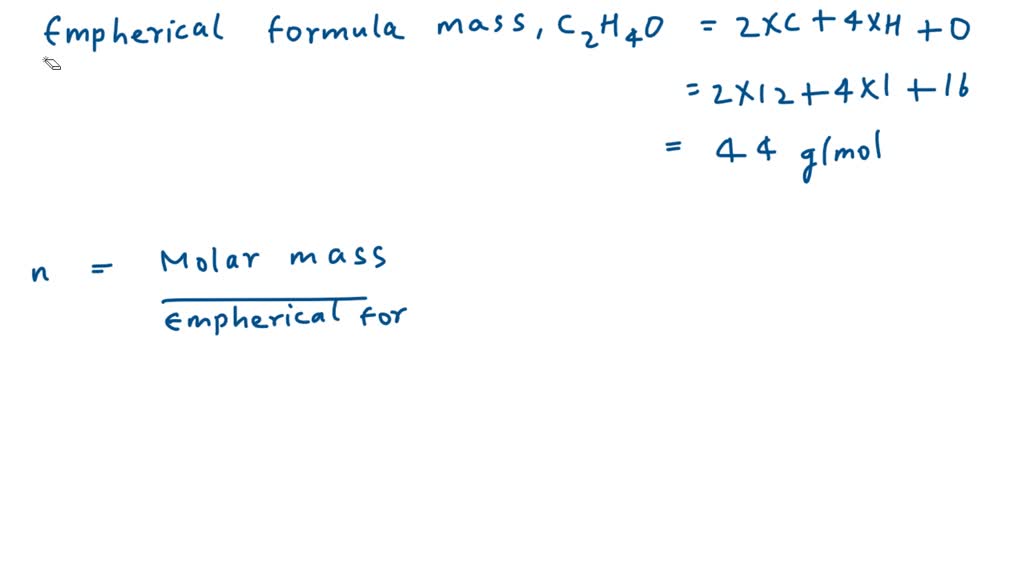 Empherical formula mass, C₂H₄O = 2XC + 4XH + O
= 2X12 + 4X1 + 16
= 44 g/mol
n = Molar mass
Empherical for